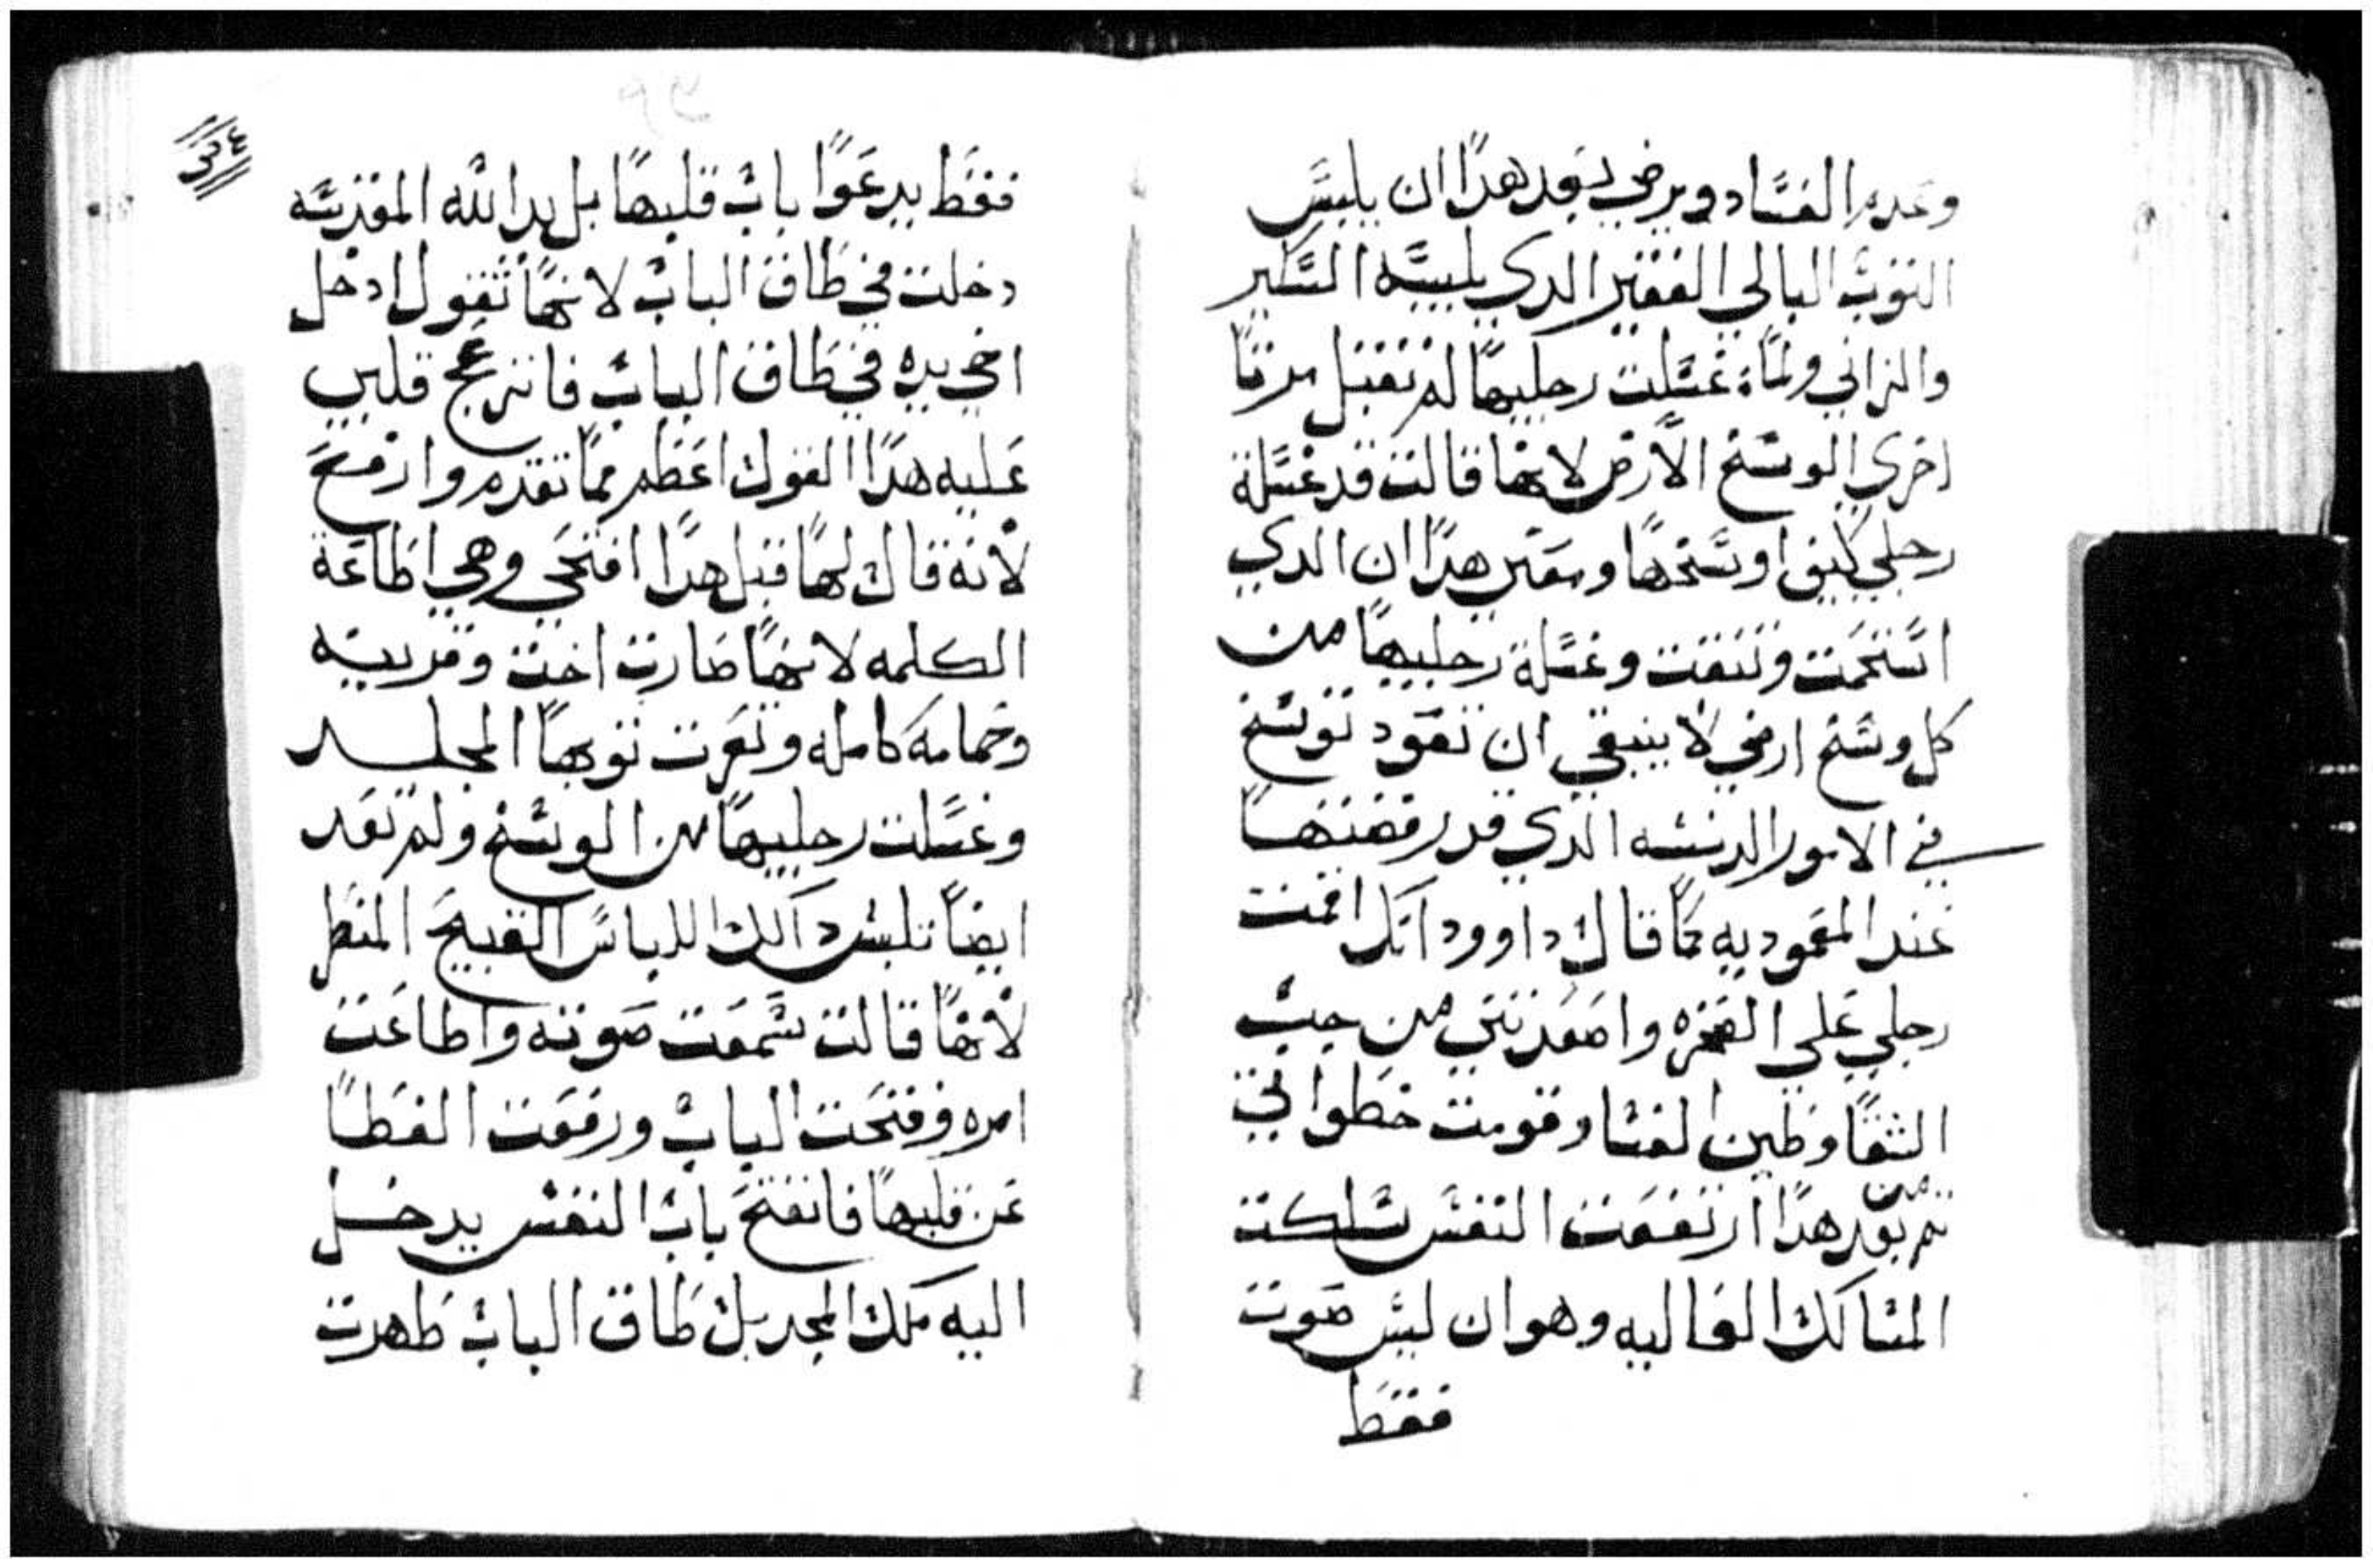 وعدم الفساد ويرضي بعد هدا ان يلبس
التوب البالي الفقير الدي يلبسه السكير
والزاني ولما غسلت رجليها لم تقبل مرتا
اخري الوسخ الارض لانها قالت قد غسلة
رجلي كيف اوسخها ومعني هدا ان الدي
استحمت وتنقت وغسلة رجليها من
كل وسخ ارضي لا ينبغي ان تعود توسخ
في الامور الدنسه الدي قد رفضتها
عند المعموديه كما قال داوود انك اقمت
رجلي علي الصخره واصعدتني من جب
الشقا وطين الفساد وقومت خطواتي
تم من بعد هدا ارتفعت النفس سلكت
المسالك العاليه وهو ان ليس صوت
فقط
٣٤
فقط يدعوا باب قلبها بل يد الله المقدسه
دخلت في طاق الباب لانها تقول ادخل
اخي يده في طاق الباب فانزعج قلبي
عليه هدا القول اعظم مما تقدم وارفع
لانه قال لها قبل هدا افتحي وهي اطاعة
الكلمه لانها صارت اخت وقريبه
وحمامه كاملة وتعرت توبها الجلد
وغسلت رجليها من الوسخ ولم تعد
ايضا تلبس دالك اللباس القبيح المنظر
لانها قالت سمعت صوته واطاعت
امره وفتحت الباب ورفعت الغطا
عن قلبها فانفتح باب النفس يدخل
اليه ملك المجد بل طاق الباب ظهرت